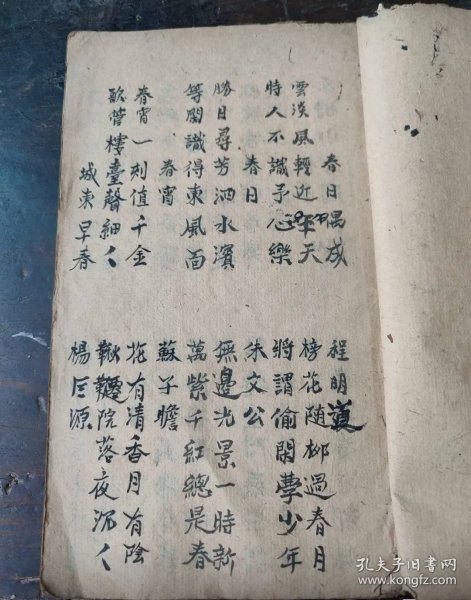 春日偶成 程明道
雲淡風輕近午天 榜花随柳過春月
時人不識予心樂 將謂偷閑學少年
春日 朱文公
勝日尋芳泗水濱 無邊光景一時新
等閑識得東風面 萬紫千紅總是春
春宵 蘇子瞻
春宵一刻值千金 花有清香月有陰
歌管樓臺聲細〻 鞦韆院落夜沉〻
城東早春 楊巨源
孔夫子旧书网
www.kongfz.com